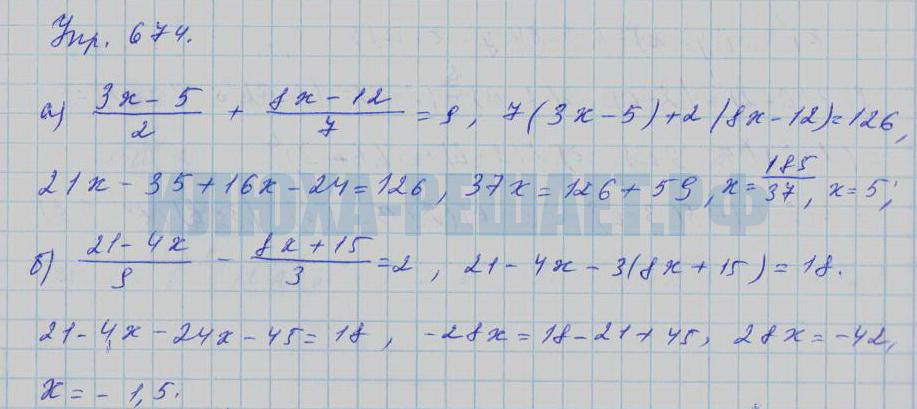 Упр. 674.
а) (3x - 5)/2 + (8x - 12)/7 = 9, 7(3x - 5) + 2(8x - 12) = 126,
21x - 35 + 16x - 24 = 126, 37x = 126 + 59, x = 185/37, x = 5;
б) (21 - 4x)/9 - (8x + 15)/3 = 2, 21 - 4x - 3(8x + 15) = 18.
21 - 4x - 24x - 45 = 18, -28x = 18 - 21 + 45, 28x = -42,
x = - 1,5.
ИЛЮХА-РЕШАЕТ.РФ